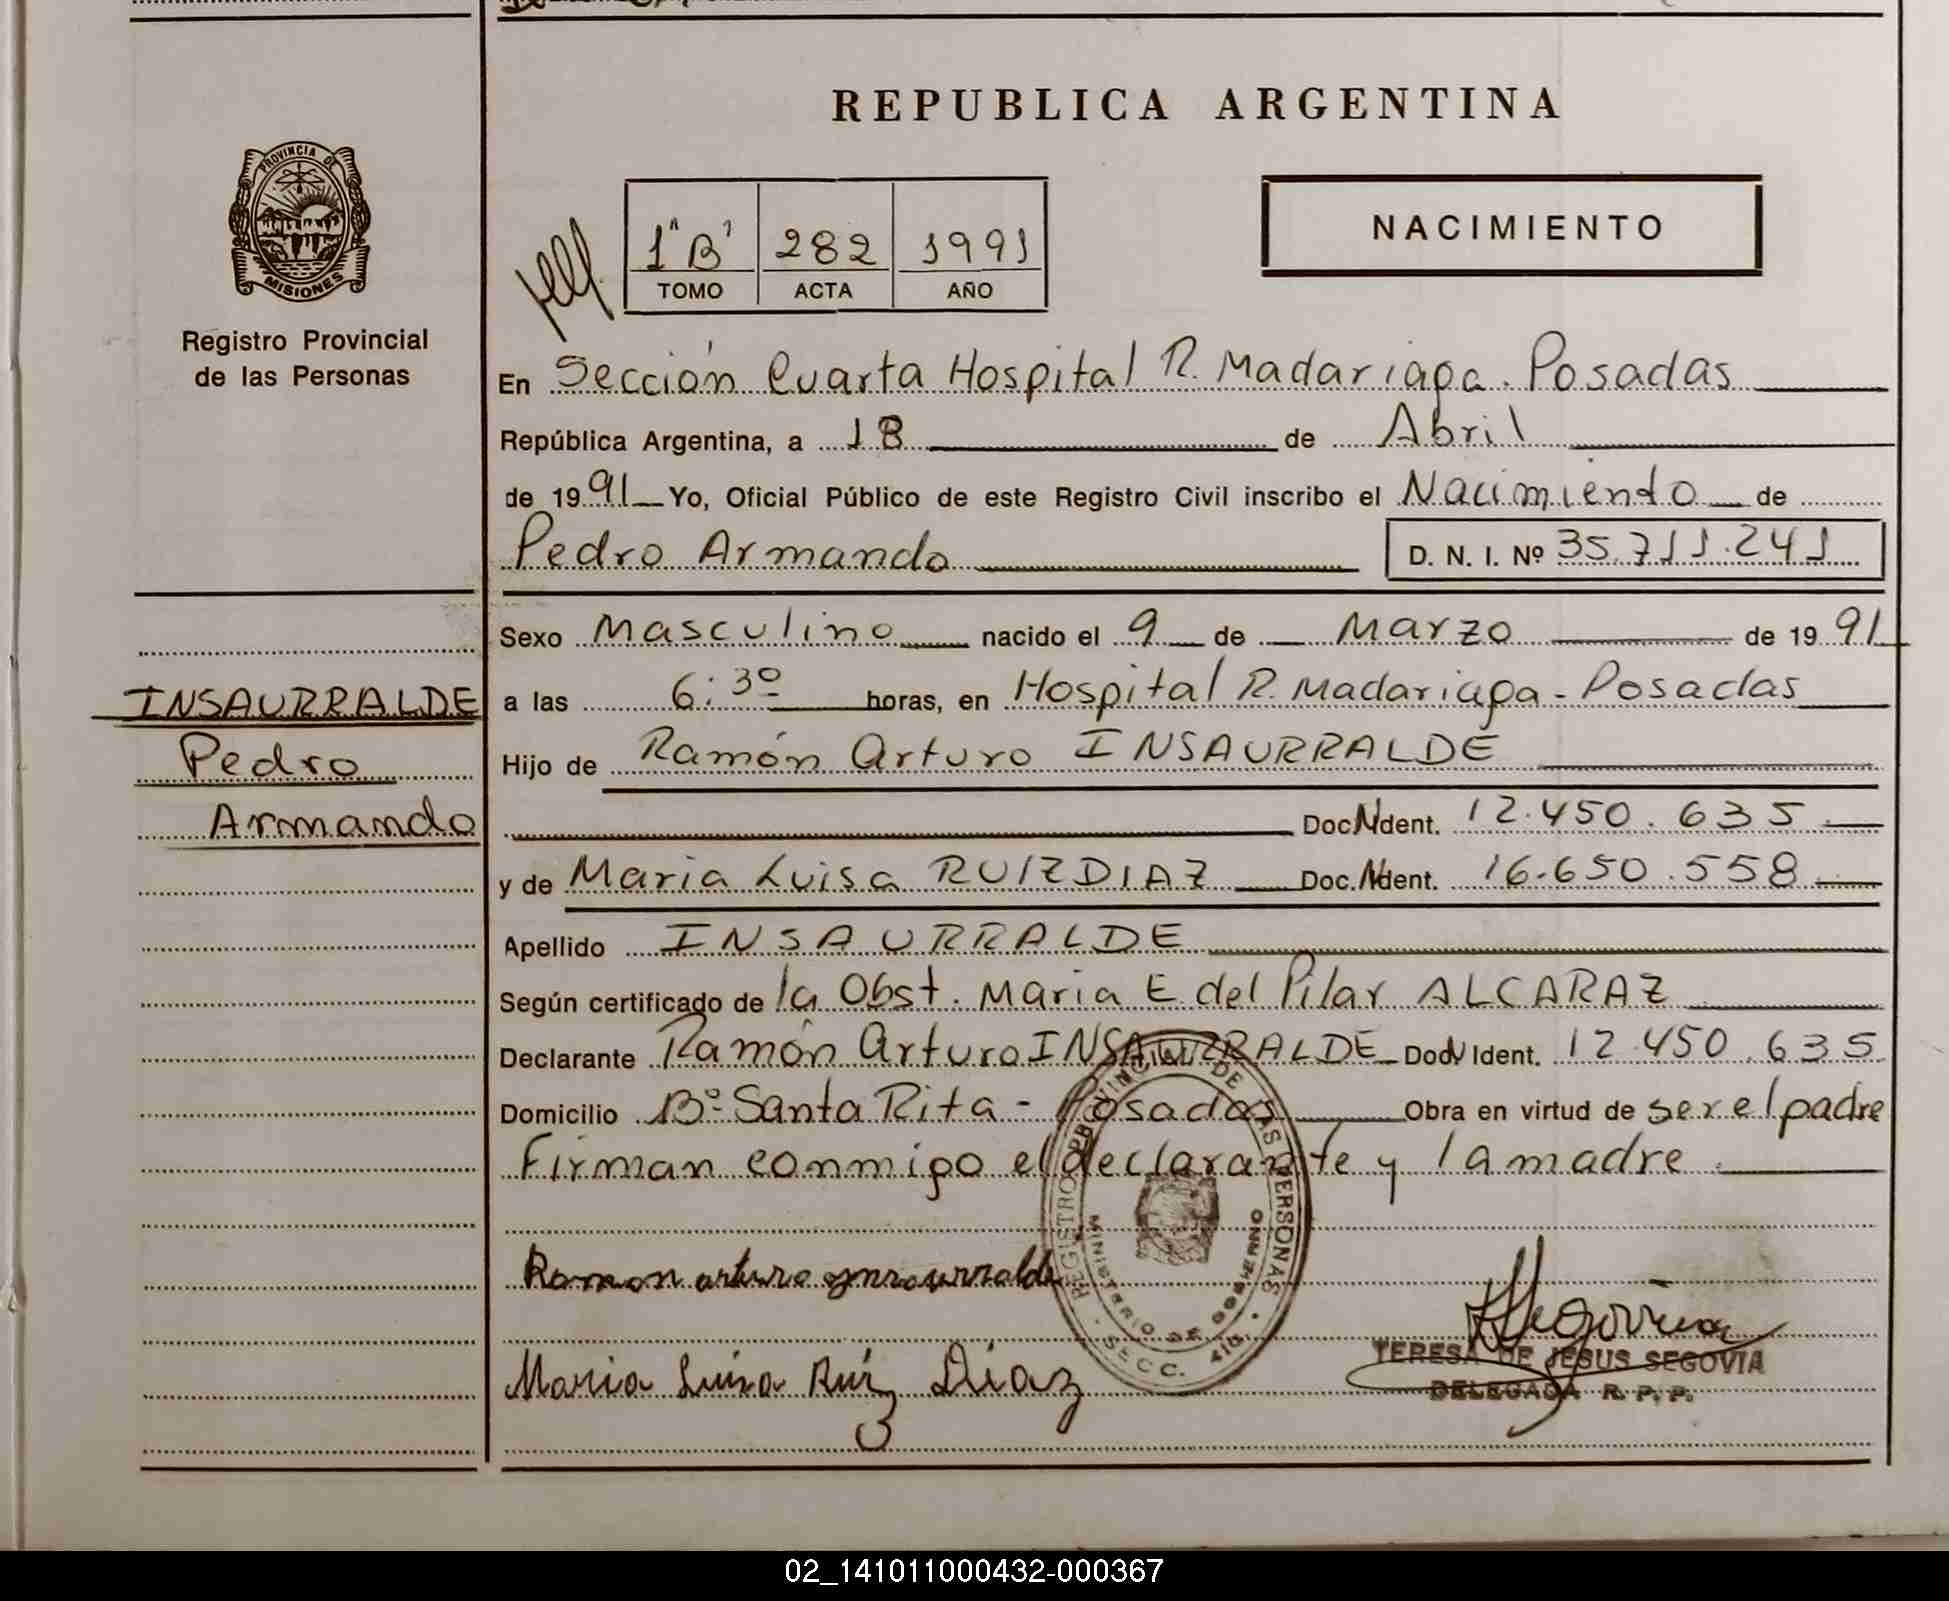 REPUBLICA ARGENTINA
PROVINCIA DE
MISIONES
Registro Provincial
de las Personas
NACIMIENTO
1ª "B" 282 1991
TOMO ACTA AÑO
En Sección Cuarta Hospital R. Madariaga. Posadas
República Argentina, a 18 de Abril
de 1991 Yo, Oficial Público de este Registro Civil inscribo el Nacimiento de
Pedro Armando D. N. I. Nº 35.711.241
Sexo Masculino nacido el 9 de Marzo de 1991
a las 6:30 horas, en Hospital R. Madariaga - Posadas
Hijo de Ramón Arturo INSAURRALDE
Doc. Ident. 12.450.635
y de Maria Luisa RUIZ DIAZ Doc. Ident. 16.650.558
Apellido INSAURRALDE
Según certificado de la Obst. Maria E. del Pilar ALCARAZ
Declarante Ramón Arturo INSAURRALDE Doc Ident. 12.450.635
Domicilio Bº Santa Rita - Posadas Obra en virtud de ser el padre
Firman conmigo el declarante y la madre.
INSAURRALDE
Pedro
Armando
REGISTRO PROVINCIAL DE LAS PERSONAS
MINISTERIO DE GOBIERNO
SECC. 4ta.
Ramon arturo ynsaurralde
Maria Luisa Ruiz Diaz
TERESA DE JESUS SEGOVIA
DELEGADA R. P. P.
02_141011000432-000367